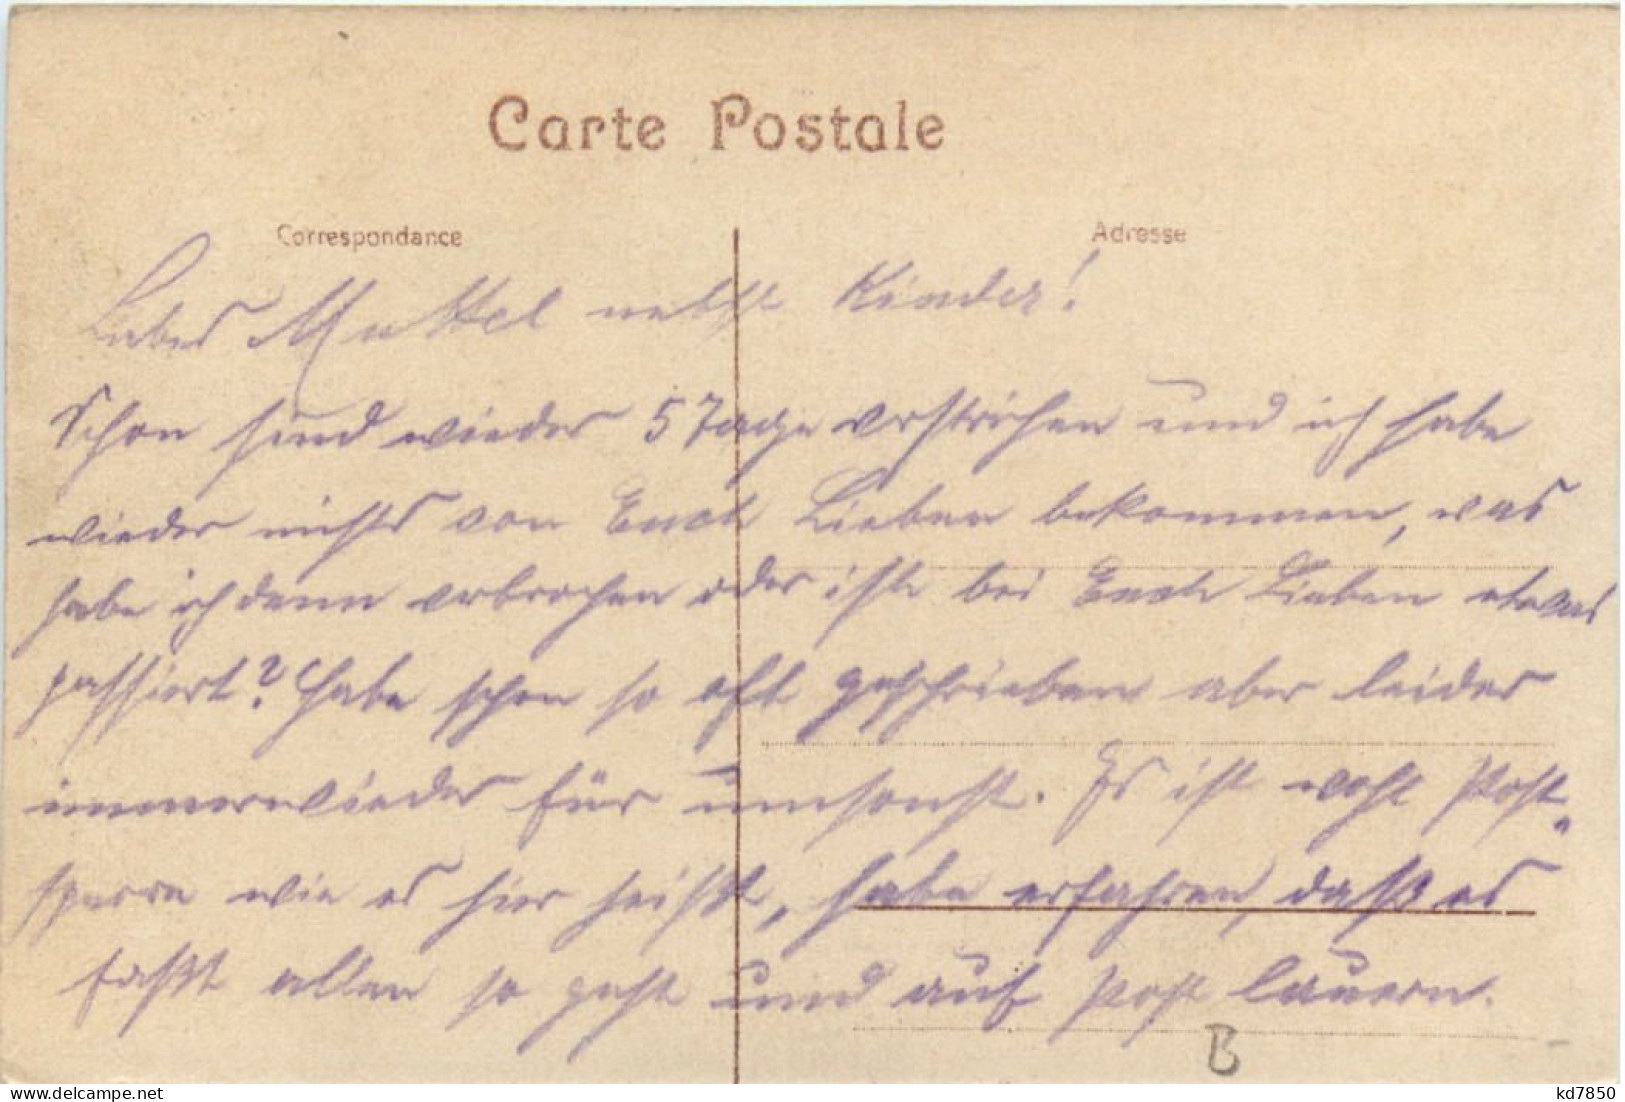 Carte Postale
Correspondance
Adresse
Liebes Muttel nebst Kinder!
Schon sind wieder 5 Tage verstrichen und ich habe
wieder nichts von Euch Lieben bekommen, was
habe ich denn verbrochen oder ist bei Euch Lieben etwas
passiert? Habe schon so oft geschrieben aber leider
immerwieder für umsonst. Es ist wohl Post-
sperre wie es hier heißt, habe erfahren, daß es
faßt allen so geht und auf Post lauern.
B
kd7850